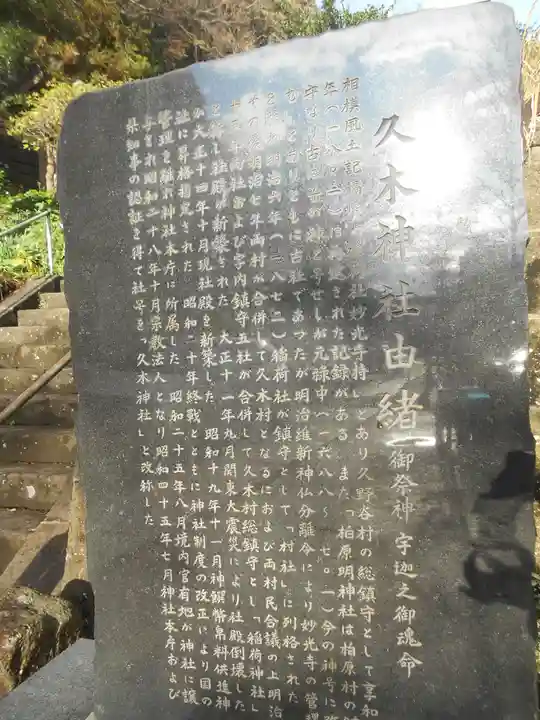 久木神社由緒(御祭神 宇迦之御魂命
相模風土記稿 社妙光寺持」とあり久野谷村の総鎮守として享和
年(一八〇 された記録がある また「柏原明神社は柏原村の
守なり古 神と号せしが元禄中(一六八八〜一七〇一)今の神号に
もに古社であつたが明治維新神仏分離令により妙光寺の管理
明治六年(一八七二)稲荷社が鎮守として「村社」に列格された
その 明治七年両村が合併して久木村となるにおよび両村民合議の上明治
年両社および字内鎮守五社が合併して久木村総鎮守とし「稲荷神社」
と称し社殿 新築された 大正十一年九月関東大震災により社殿倒壊した
か大正十四年十月現社殿を新築した 昭和十九年十一月神饌幣帛料供進神
社に昇格指定された 昭和二十年終戦とともに神社制度の改正により国の
管理を離れ神社本庁に所属した 昭和二十五年八月境内官有地が神社に譲
与され昭和二十八年十月宗教法人となり昭和四十五年七月神社本庁および
県知事の認証を得て社号を「久木神社」と改称した